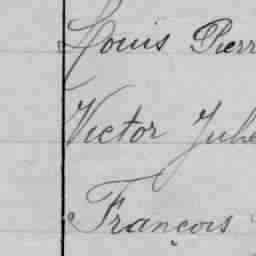 Louis Pierr
Victor Jule
François